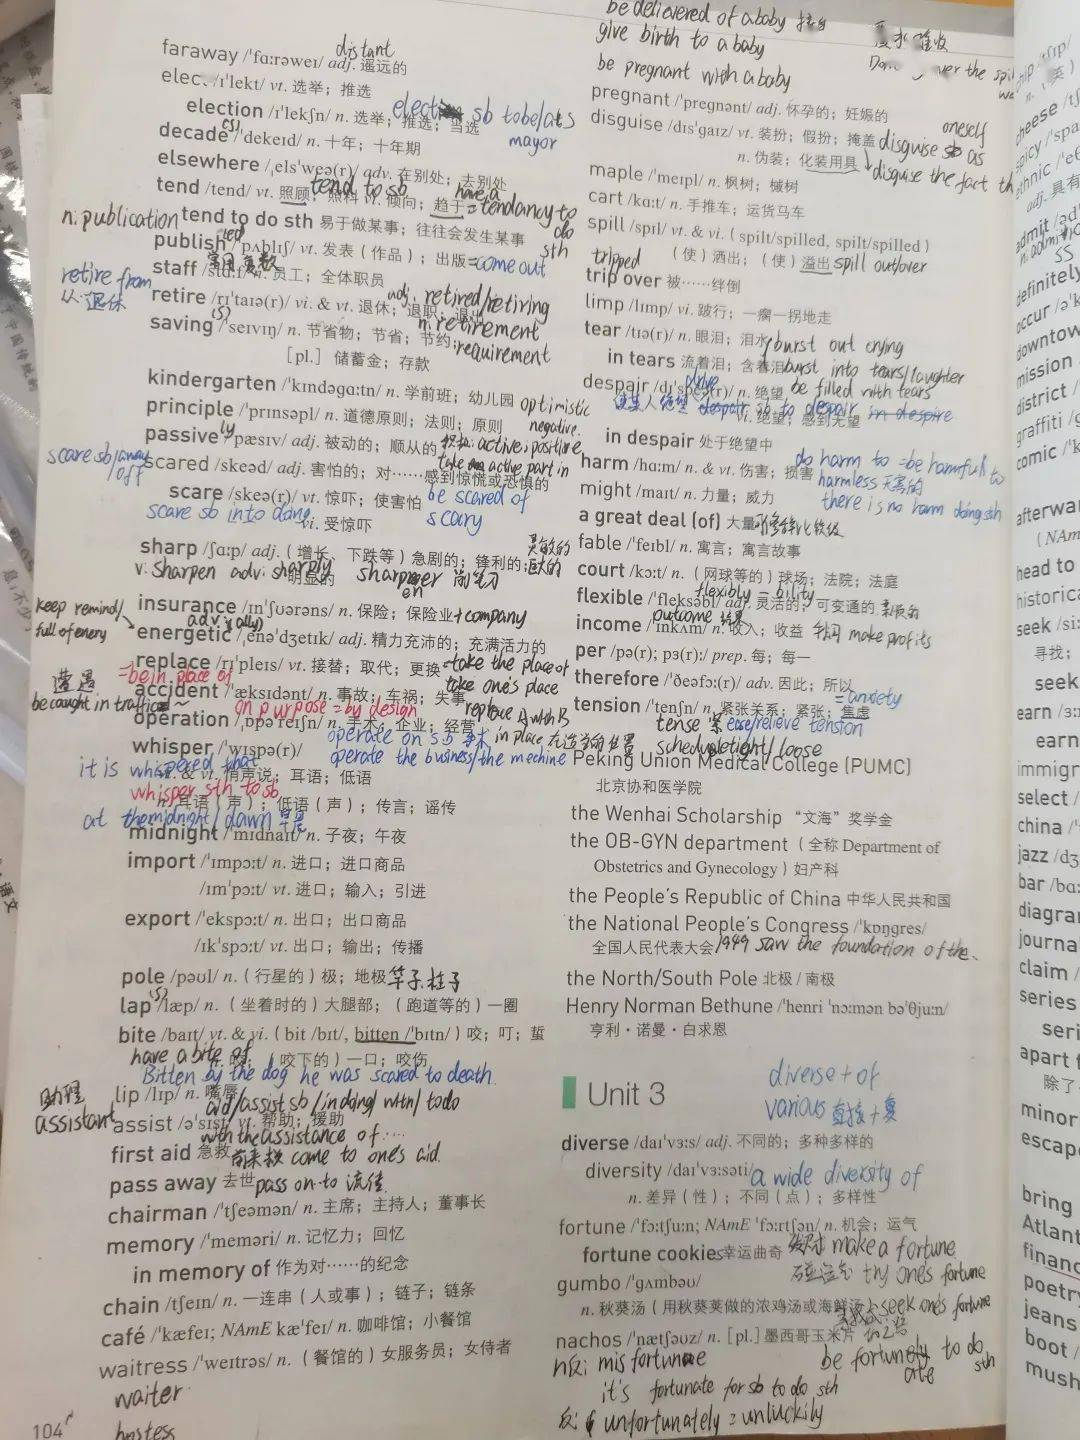 distant
faraway /ˈfɑːrəweɪ/ adj. 遥远的
/ɪˈlekt/ vt. 选举；推选
election /ɪˈlekʃn/ n. 选举；推选；当选
sb to be/as
mayor
decade /ˈdekeɪd/ n. 十年；十年期
(s)
elsewhere /ˌelsˈweə(r)/ adv. 在别处；去别处
tend /tend/ vt. 照顾；照料 vi. 倾向；趋于
tend to sb
have a
=tendancy to
do
sth
n. publication
tend to do sth 易于做某事；往往会发生某事
publish /ˈpʌblɪʃ/ vt. 发表（作品）；出版
=come out
staff /stɑːf/ n. 员工；全体职员
retire from
从…退休
adj. retired/retiring
retire /rɪˈtaɪə(r)/ vi. & vt. 退休；退职；退出
n. retirement
saving /ˈseɪvɪŋ/ n. 节省物；节省；节约；
(s)
requirement
［pl.］储蓄金；存款
kindergarten /ˈkɪndəɡɑːtn/ n. 学前班；幼儿园
optimistic
principle /ˈprɪnsəpl/ n. 道德原则；法则；原则
negative.
passive /ˈpæsɪv/ adj. 被动的；顺从的
ly
active, positive
take an active part in
scare sb/away
/off
scared /skeəd/ adj. 害怕的；对……感到惊慌或恐惧的
scare /skeə(r)/ vt. 惊吓；使害怕
be scared of
scare sb into doing
vi. 受惊吓
scary
sharp /ʃɑːp/ adj.（增长、下跌等）急剧的；锋利的；
灵敏的
v. sharpen adv. sharply
明显的
insurance /ɪnˈʃʊərəns/ n. 保险；保险业
+company
keep remind/
full of energy
energetic /ˌenəˈdʒetɪk/ adj. 精力充沛的；充满活力的
replace /rɪˈpleɪs/ vt. 接替；取代；更换
=take the place of
take one's place
=be in place of
replace A with B
accident /ˈæksɪdənt/ n. 事故；车祸；失事
遭遇
be caught in traffic ~
on purpose = by design
operation /ˌɒpəˈreɪʃn/ n. 手术；企业；经营
operate on sb 手术
in place 在适当的位置
whisper /ˈwɪspə(r)/
operate the business/the mechine
it is whispered that
vi. & vt. 悄声说；耳语；低语
whisper sth to sb
n. 耳语（声）；低语（声）；传言；谣传
at the midnight/dawn
midnight /ˈmɪdnaɪt/ n. 子夜；午夜
import /ˈɪmpɔːt/ n. 进口；进口商品
/ɪmˈpɔːt/ vt. 进口；输入；引进
export /ˈekspɔːt/ n. 出口；出口商品
/ɪkˈspɔːt/ vt. 出口；输出；传播
pole /pəʊl/ n.（行星的）极；地极
竿子，柱子
lap /læp/ n.（坐着时的）大腿部；（跑道等的）一圈
(s)
bite /baɪt/ vt. & vi.（bit /bɪt/, bitten /ˈbɪtn/）咬；叮；蜇
have a bite of
（咬下的）一口；咬伤
Bitten by the dog he was scared to death.
lip /lɪp/ n. 嘴唇
助理
assistant
aid/assist sb /in doing/ with/ to do
assist /əˈsɪst/ vt. 帮助；援助
with the assistance of ...
first aid 急救
前来救 come to one's aid.
pass away 去世
pass on to 流传
chairman /ˈtʃeəmən/ n. 主席；主持人；董事长
memory /ˈmeməri/ n. 记忆力；回忆
in memory of 作为对……的纪念
chain /tʃeɪn/ n. 一连串（人或事）；链子；链条
café /ˈkæfeɪ; NAmE kæˈfeɪ/ n. 咖啡馆；小餐馆
waitress /ˈweɪtrəs/ n.（餐馆的）女服务员；女侍者
waiter
104
hostess
be delievered of a baby
give birth to a baby
be pregnant with a baby
over the
pregnant /ˈpreɡnənt/ adj. 怀孕的；妊娠的
disguise /dɪsˈɡaɪz/ vt. 装扮；假扮；掩盖
oneself
disguise sb as
n. 伪装；化装用具
disguise the fact th
maple /ˈmeɪpl/ n. 枫树；槭树
cart /kɑːt/ n. 手推车；运货马车
spill /spɪl/ vt. & vi.（spilt/spilled, spilt/spilled）
（使）洒出；（使）溢出
spill out/over
tripped
trip over 被……绊倒
limp /lɪmp/ vi. 跛行；一瘸一拐地走
tear /tɪə(r)/ n. 眼泪；泪水
burst out crying
in tears 流着泪；含着泪
burst into tears/laughter
despair /dɪˈspeə(r)/ n. 绝望
be filled with tears
drive
sb to despair
vi. 绝望；感到无望
in despair 处于绝望中
harm /hɑːm/ n. & vt. 伤害；损害
do harm to =be harmful to
harmless 无害的
might /maɪt/ n. 力量；威力
there is no harm doing sth
a great deal (of) 大量
可修饰比较级
fable /ˈfeɪbl/ n. 寓言；寓言故事
court /kɔːt/ n.（网球等的）球场；法院；法庭
flexible /ˈfleksəbl/ adj. 灵活的；可变通的
flexibly
bility
income /ˈɪnkʌm/ n. 收入；收益
outcome 结果
make profits
per /pə(r); pɜː(r)/ prep. 每；每一
therefore /ˈðeəfɔː(r)/ adv. 因此；所以
tension /ˈtenʃn/ n. 紧张关系；紧张；焦虑
=anxiety
tense 紧
ease/relieve tension
tight/loose
Peking Union Medical College (PUMC)
北京协和医学院
the Wenhai Scholarship “文海”奖学金
the OB-GYN department（全称 Department of
Obstetrics and Gynecology）妇产科
the People's Republic of China 中华人民共和国
the National People's Congress /ˈkɒŋɡres/
全国人民代表大会
1949 saw the foundation of the
the North/South Pole 北极 / 南极
Henry Norman Bethune /ˈhenri ˈnɔːmən bəˈθjuːn/
亨利·诺曼·白求恩
Unit 3
diverse + of
various 直接+复
diverse /daɪˈvɜːs/ adj. 不同的；多种多样的
diversity /daɪˈvɜːsəti/
a wide diversity of
n. 差异（性）；不同（点）；多样性
fortune /ˈfɔːtʃuːn; NAmE ˈfɔːrtʃən/ n. 机会；运气
fortune cookies 幸运曲奇
发财 make a fortune
gumbo /ˈɡʌmbəʊ/
碰运气 try one's fortune
n. 秋葵汤（用秋葵荚做的浓鸡汤或海鲜汤）
seek one's fortune
nachos /ˈnætʃəʊz/ n.［pl.］墨西哥玉米片
n反: misfortune
be fortunate to do
sth
it's fortunate for sb to do sth
反: unfortunately = unluckily
cheese
spicy
ethnic
adj. 具有
admit
definitely
occur
downtown
mission
district
graffiti
comic
afterwar
(NAm
head to
historica
seek /siː
寻找；
seek
earn /ɜː
earn
immigr
select
china
jazz /dʒ
bar /bɑː
diagram
journal
claim
series
seri
apart f
除了
minor
escape
bring
Atlant
financ
poetry
jeans
boot
mush